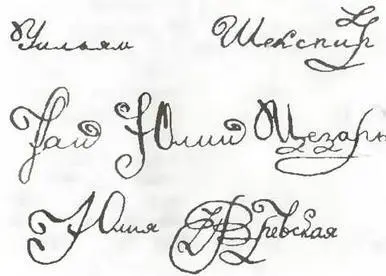 Уильям Шекспир
Гай Юлий Цезарь
Юлия Вревская